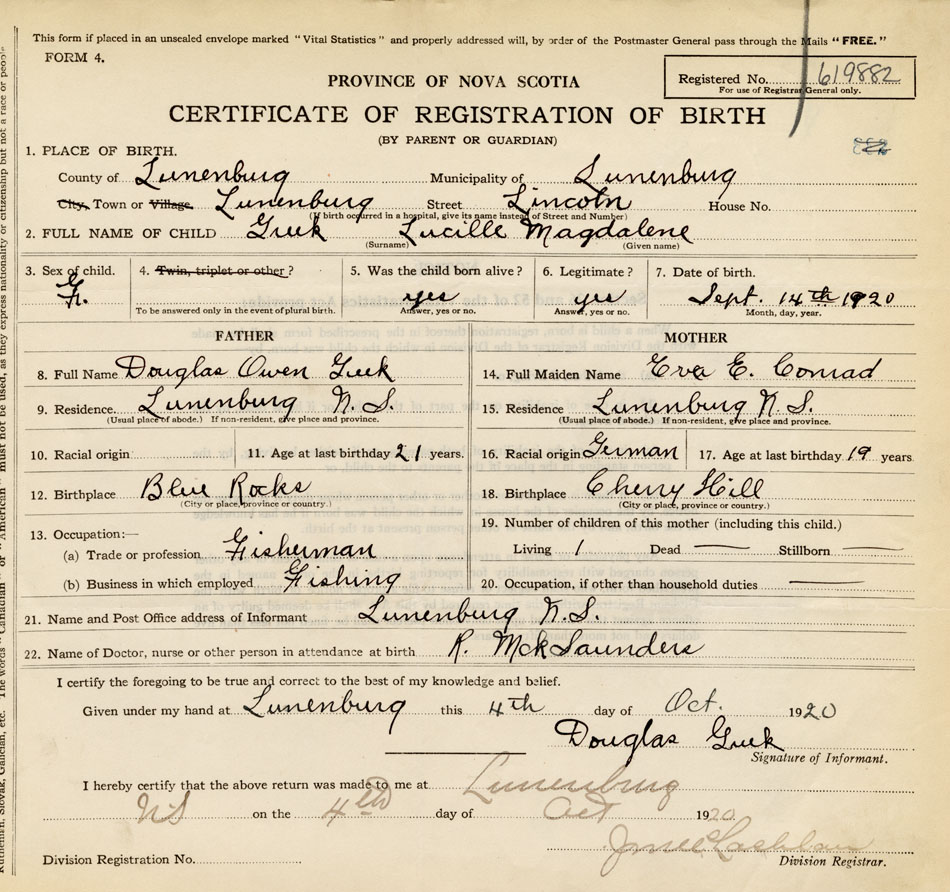 This form if placed in an unsealed envelope marked "Vital Statistics" and properly addressed will, by order of the Postmaster General pass through the Mails "FREE."
FORM 4.
Registered No. 619882
For use of Registrar General only.
PROVINCE OF NOVA SCOTIA
CERTIFICATE OF REGISTRATION OF BIRTH
(BY PARENT OR GUARDIAN)
1. PLACE OF BIRTH.
County of Lunenburg Municipality of Lunenburg
City, Town or Village. Lunenburg Street Lincoln House No.
(If birth occurred in a hospital, give its name instead of Street and Number)
2. FULL NAME OF CHILD Greek Lucille Magdalene
(Surname) (Given name)
3. Sex of child. 4. Twin, triplet or other? 5. Was the child born alive? 6. Legitimate? 7. Date of birth.
F. yes yes Sept. 14th 1920
To be answered only in the event of plural birth. Answer, yes or no. Answer, yes or no. Month, day, year.
FATHER MOTHER
8. Full Name Douglas Owen Greek 14. Full Maiden Name Eva E. Conrad
9. Residence. Lunenburg N.S. 15. Residence Lunenburg N.S.
(Usual place of abode.) If non-resident, give place and province. (Usual place of abode.) If non-resident, give place and province.
10. Racial origin 11. Age at last birthday 21 years. 16. Racial origin German 17. Age at last birthday 19 years
12. Birthplace Blue Rocks 18. Birthplace Cherry Hill
(City or place, province or country.) (City or place, province or country.)
13. Occupation:— 19. Number of children of this mother (including this child.)
(a) Trade or profession Fisherman Living 1 Dead — Stillborn —
(b) Business in which employed Fishing 20. Occupation, if other than household duties —
21. Name and Post Office address of Informant Lunenburg N.S.
22. Name of Doctor, nurse or other person in attendance at birth R. McK Saunders
I certify the foregoing to be true and correct to the best of my knowledge and belief.
Given under my hand at Lunenburg this 4th day of Oct. 1920
Douglas Greek
Signature of Informant.
I hereby certify that the above return was made to me at Lunenburg
NS on the 4th day of Oct 1920
Division Registration No. Division Registrar.